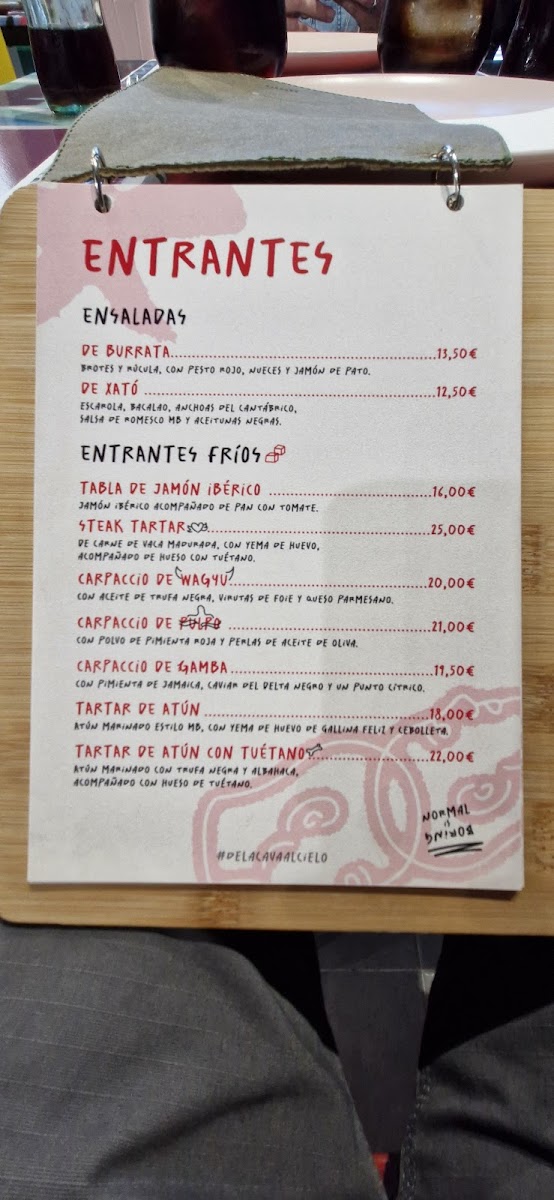 ENTRANTES
ENSALADAS
DE BURRATA 13,50€
BROTES Y RÚCULA, CON PESTO ROJO, NUECES Y JAMÓN DE PATO.
DE XATÓ 12,50€
ESCAROLA, BACALAO, ANCHOAS DEL CANTÁBRICO,
SALSA DE ROMESCO MB Y ACEITUNAS NEGRAS.
ENTRANTES FRÍOS
TABLA DE JAMÓN IBÉRICO 16,00€
JAMÓN IBÉRICO ACOMPAÑADO DE PAN CON TOMATE.
STEAK TARTAR 25,00€
DE CARNE DE VACA MADURADA, CON YEMA DE HUEVO,
ACOMPAÑADO DE HUESO CON TUÉTANO.
CARPACCIO DE WAGYU 20,00€
CON ACEITE DE TRUFA NEGRA, VIRUTAS DE FOIE Y QUESO PARMESANO.
CARPACCIO DE PULPO 21,00€
CON POLVO DE PIMIENTA ROJA Y PERLAS DE ACEITE DE OLIVA.
CARPACCIO DE GAMBA 19,50€
CON PIMIENTA DE JAMAICA, CAVIAR DEL DELTA NEGRO Y UN PUNTO CÍTRICO.
TARTAR DE ATÚN 18,00€
ATÚN MARINADO ESTILO MB, CON YEMA DE HUEVO DE GALLINA FELIZ Y CEBOLLETA.
TARTAR DE ATÚN CON TUÉTANO 22,00€
ATÚN MARINADO CON TRUFA NEGRA Y ALBAHACA,
ACOMPAÑADO CON HUESO DE TUÉTANO.
NORMAL
IS
BORING
#DELACAVAALCIELO